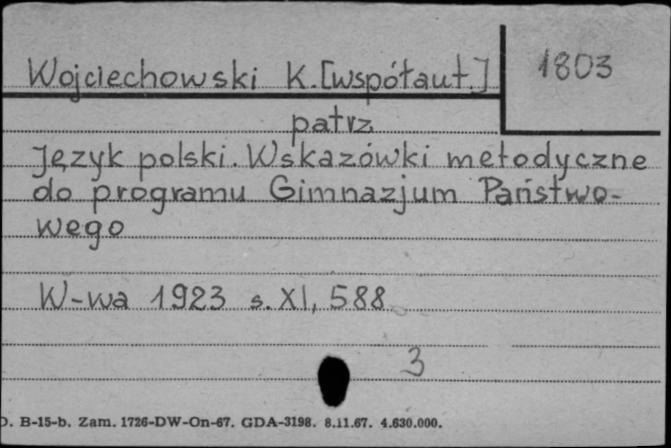 Wojciechowski K. [współaut.]
1803
patrz
Język polski. Wskazówki metodyczne
do programu Gimnazjum Państwo-
wego
W-wa 1923 s. XI, 588
3
D. B-15-b. Zam. 1726-DW-On-67. GDA-3198. 8.11.67. 4.630.000.